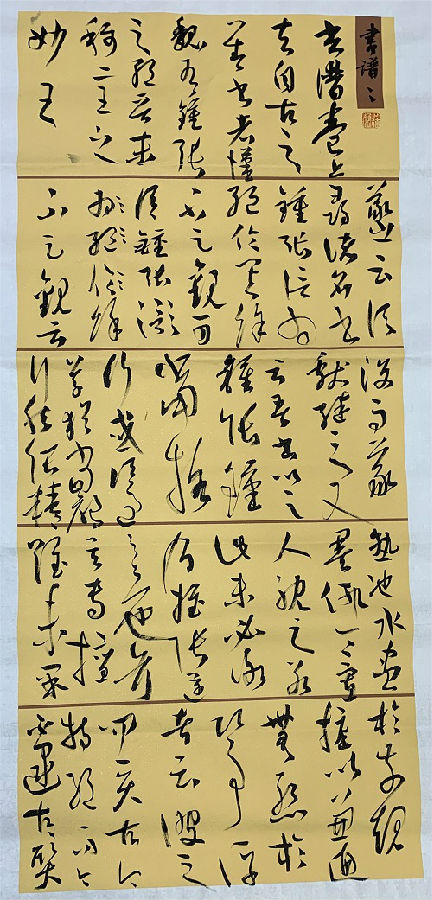 書譜
書譜卷上
夫自古之
善書者漢
魏有鍾張
之絕晉末
稱二王之
妙王
羲之云頃
尋諸名書
鍾張信為
絕倫其餘
不足觀可
謂鍾張
不足觀云
沒而羲
獻繼之又
云吾書比之
鍾張鍾
當抗
行或謂過
草猶當雁
行然張精
熟池水盡
墨假令寡
人耽之若
此未必謝
乃推張邁
之意也考
其專擅
雖未果
於前規
摭以兼通
無慚於
即事評
者云彼之
四賢古今
特絕而今
不逮古質